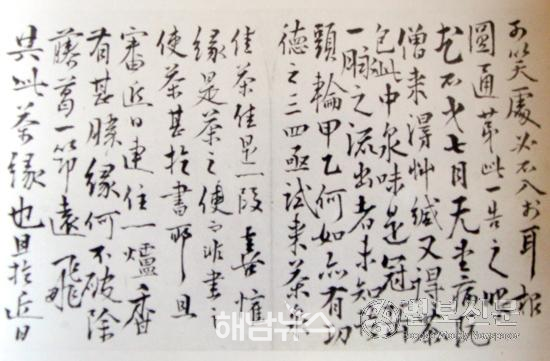 可笑處必不入於耳報
圓通第此一告之
七月
僧來得艸緘又得茶
包此中泉味是冠岳
一脈之流出者未知於
頭輪甲乙何如亦有功
德之三四亟試來茶
佳茶佳是一段喜懽
緣是茶之使而非書之
使茶甚於書耶且
審近日連住一爐香
有甚勝緣何不破除
藤葛一筇遠飛
共此茶緣也且於近日
해남뉴스